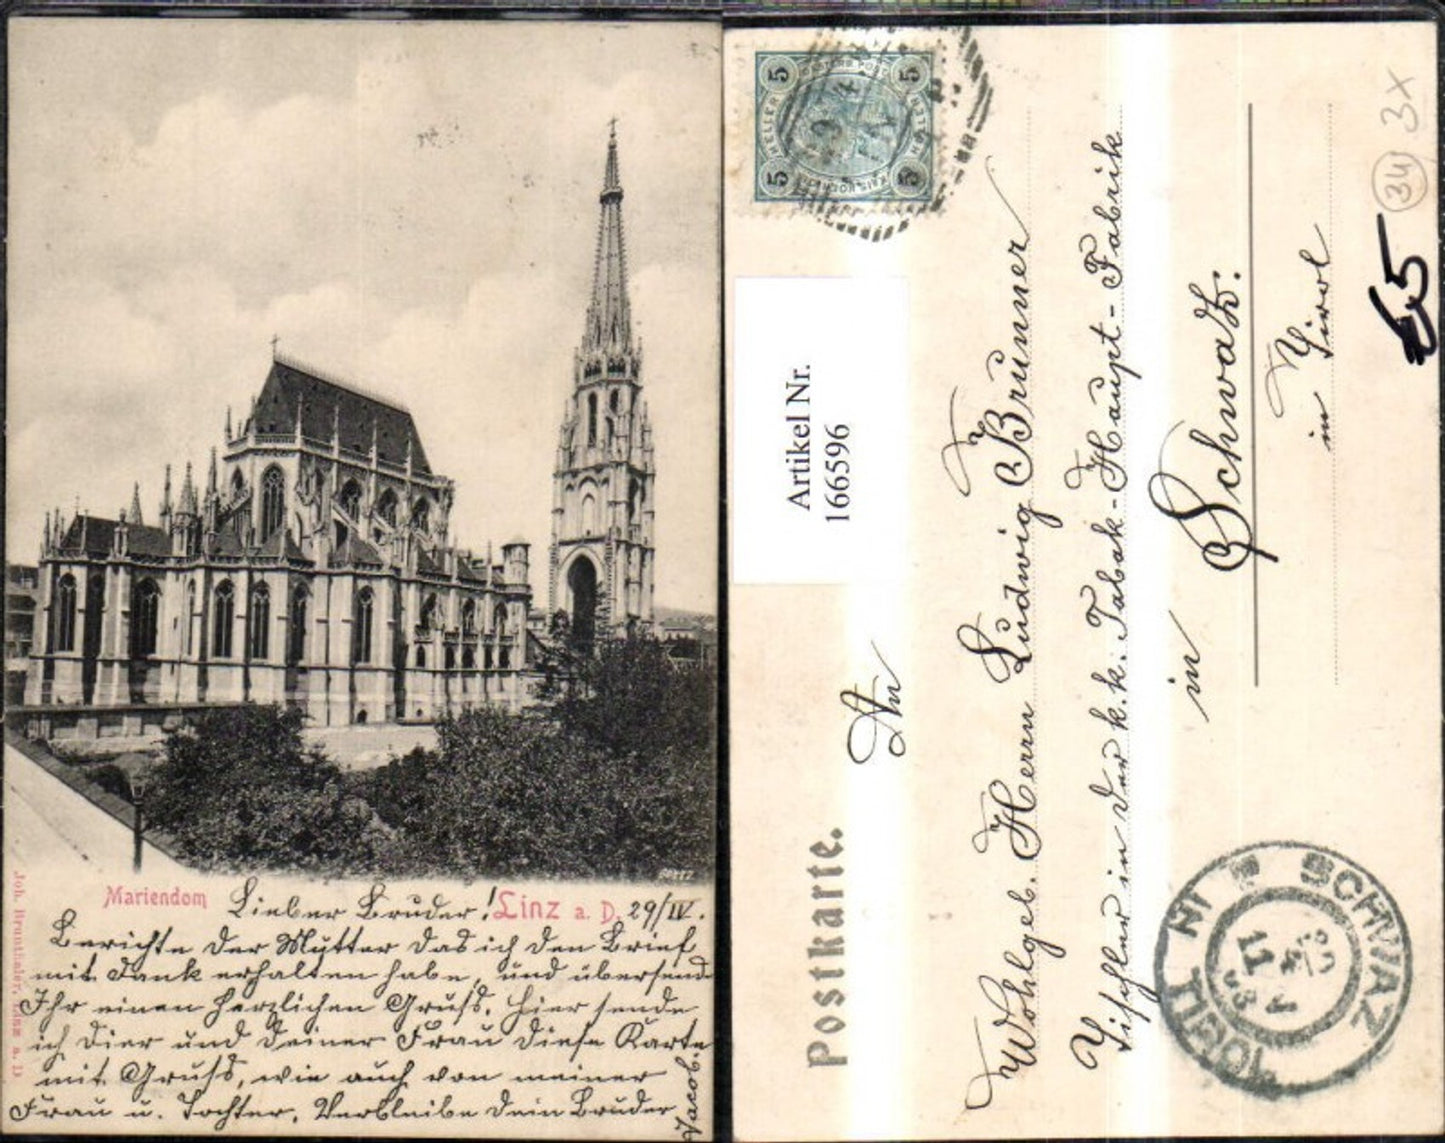 Mariendom Lieber Bruder! Linz a. D. 29/IV.
Berichte der Mutter das ich den Brief
mit Dank erhalten habe, und übersende
Ihr einen herzlichen Gruß. Hier sende
ich Dier und Deiner Frau diese Karte
mit Gruß, wie auch von meiner
Frau u. Tochter. Verbleibe dein Bruder
Jacob.
Joh. Brunthaler, Linz a. D.
5 5
5 5
HELLER HELLER
Artikel Nr.
166596
Postkarte.
An
Wohlgeb. Herrn Ludwig Brunner
Tischler in der k. k. Tabak-Haupt-Fabrik
in Schwatz.
in Tirol
34 3x
€5
SCHWAZ IN TIROL